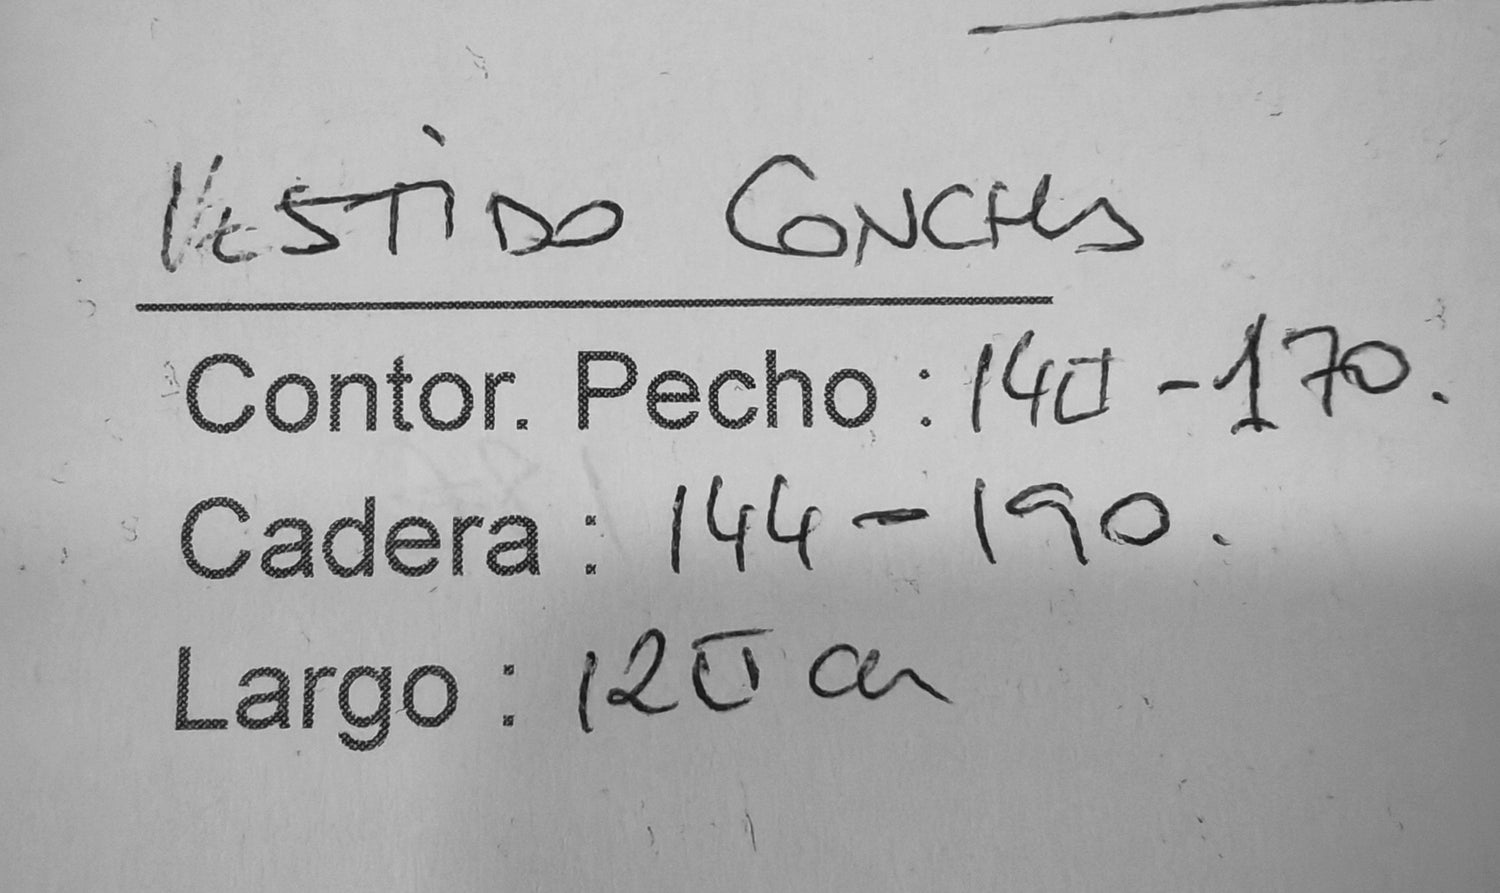 VESTIDO CONCHAS
Contor. Pecho : 140 - 170.
Cadera : 144 - 190.
Largo : 120 cm